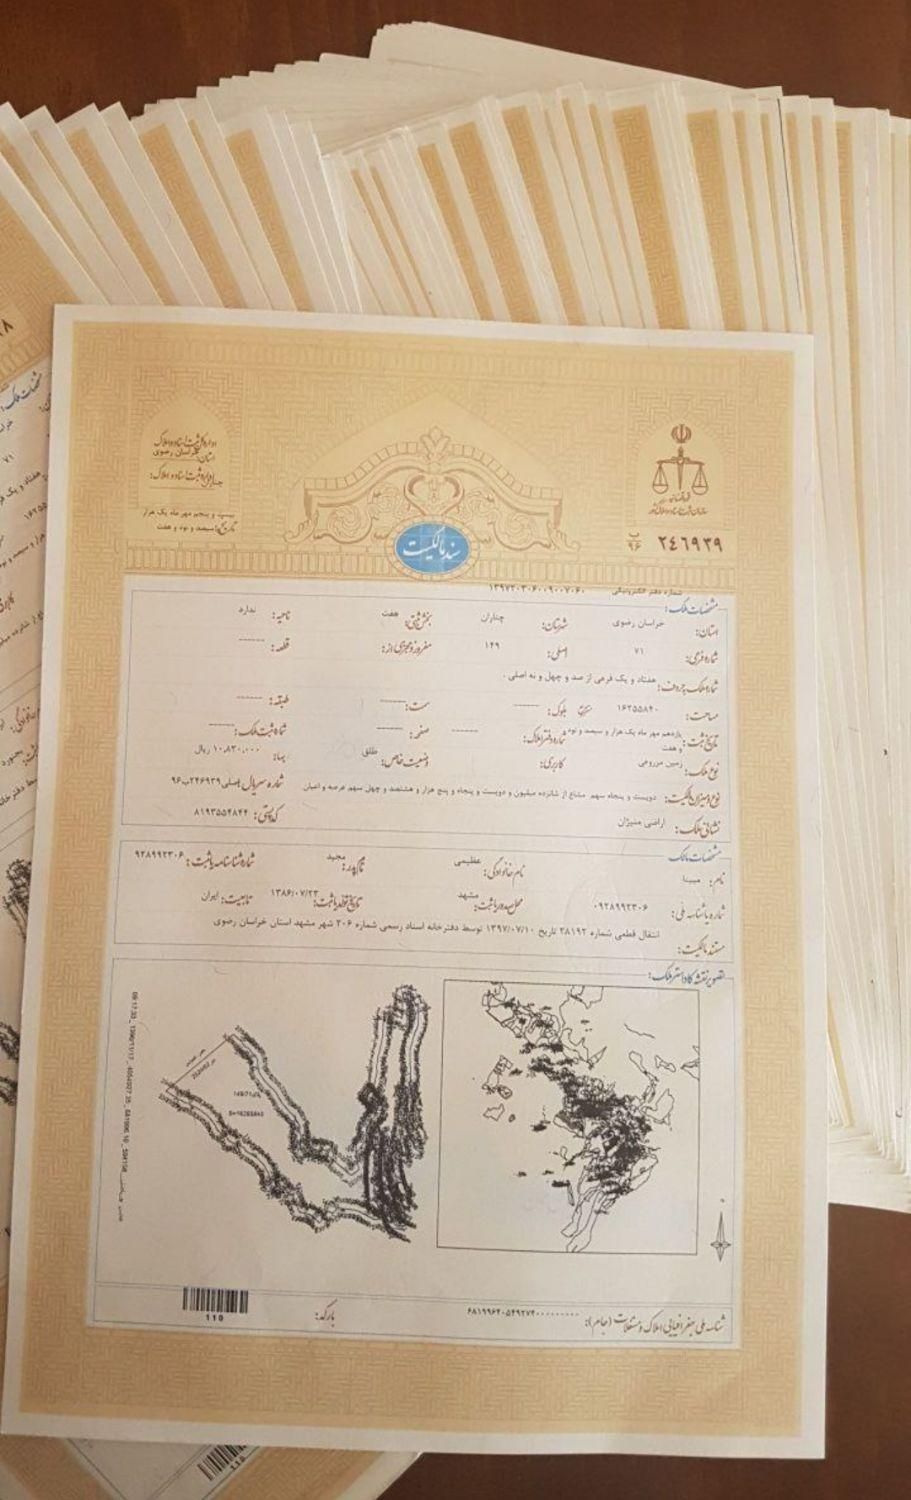 اداره کل ثبت اسناد و املاک
استان: خراسان رضوی
بیست و پنجم مهر ماه یک هزار
تاریخ: و سیصد و نود و هفت
ب ۹۶ ۲۴۶۹۳۹
سند مالکیت
شماره دفتر الکترونیکی ۱۳۹۷۲۰۳۰۶۰۰۹۰۰۷۰۶۰
مشخصات ملک:
استان: خراسان رضوی شهرستان: چناران بخش ثبتی: هفت ناحیه: ندارد
شماره فرعی: ۷۱ اصلی: ۱۴۹ مفروز و مجزی از: قطعه: ------
شماره ملک بحروف: هفتاد و یک فرعی از صد و چهل و نه اصلی .
مساحت: ۱۶۲۵۵۸۴۰ بلوک: ------ سمت: ------ طبقه: ------
تاریخ ثبت: یازدهم مهر ماه یک هزار و سیصد و نود و هفت شماره دفتر املاک: ------ صفی: ------ شماره ثبت ملک: ------
نوع ملک: زمین مزروعی کاربری: وضعیت خاص: طلق بهاء: ۱۰,۸۳۰,۰۰۰ ریال
نوع و میزان مالکیت: دویست و پنجاه سهم مشاع از شانزده میلیون و دویست و پنجاه و پنج هزار و هشتصد و چهل سهم عرصه و اعیان شماره سریال: اصلی ۲۴۶۹۳۹ب۹۶
نشانی ملک: اراضی منیژان کدپستی: ۸۱۹۳۵۵۴۸۴۴
مشخصات مالک
نام: مبینا نام خانوادگی: عظیمی نام پدر: مجید شماره شناسنامه یا ثبت: ۹۲۸۹۹۲۳۰۶
شماره یا شناسه ملی: ۰۹۲۸۹۹۲۳۰۶ محل صدور یا ثبت: مشهد تاریخ تولد یا ثبت: ۱۳۸۶/۰۷/۲۳ تابعیت: ایران
مستند مالکیت: انتقال قطعی شماره ۲۸۱۹۲ تاریخ ۱۳۹۷/۰۷/۱۰ توسط دفترخانه اسناد رسمی شماره ۲۰۶ شهر مشهد استان خراسان رضوی
تصویر نقشه کاداستر ملک:
شناسه ملی جغرافیایی املاک و مستغلات (جام):
بارکد:
110